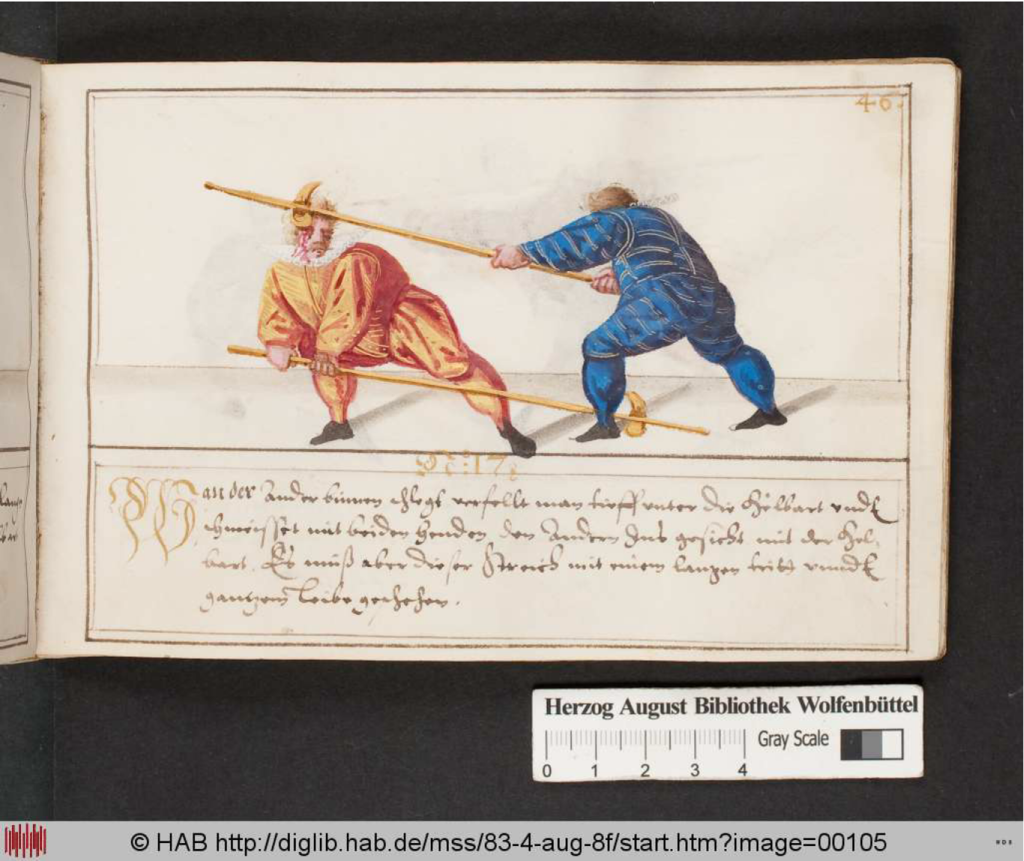 46.
N: 17.
Wan der Ander binnen schlegt verfellt man tieff unter die Helbart undt
schmeisset mit beiden henden den Andern Ins gesicht mit der Hel-
bart. Es muß aber dieser Streich mit einem langen tritt unndt
gantzem leibe geschehen.
Herzog August Bibliothek Wolfenbüttel
Gray Scale
0 1 2 3 4
© HAB http://diglib.hab.de/mss/83-4-aug-8f/start.htm?image=00105